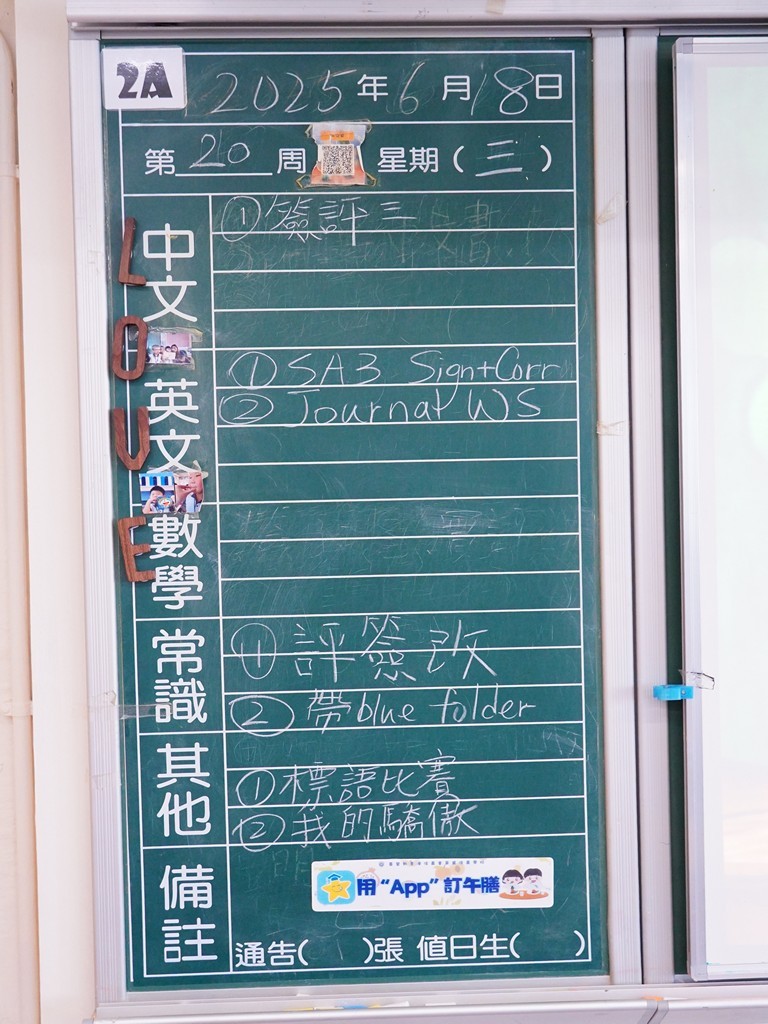 2A
2025年6月18日
第20周 星期(三)
LOVE
中文
①簽評三
英文
①SA3 Sign+Corr
②Journal WS
數學
常識
①評簽改
②帶blue folder
其他
①標語比賽
②我的驕傲
備註
用“App”訂午膳
通告( )張 值日生( )